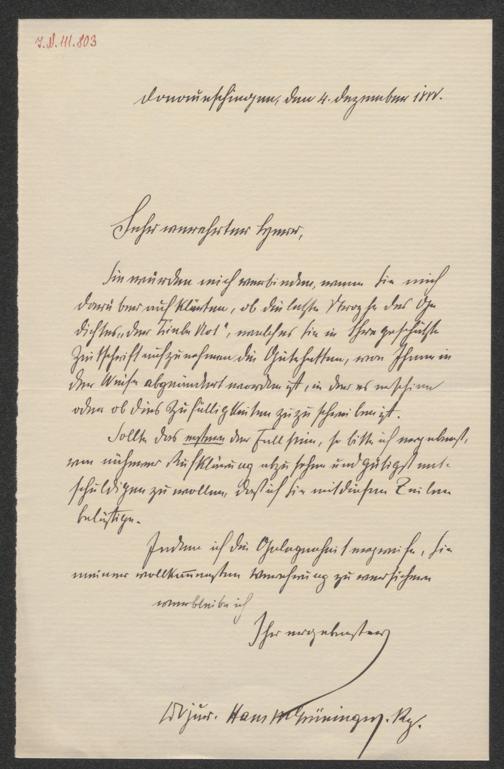 J.N. III. 803
Donaueschingen, den 4. Dezember
Sehr verehrter Herr,
Sie würden mich verbinden, wenn Sie mich
darüber aufklärten, ob die letzte Strophe des Ge-
dichtes „der Liebe Not“, welches Sie in Ihre geschätzte
Zeitschrift aufzunehmen die Güte hatten, von Ihnen in
der Weise abgeändert worden ist, in der es erschien
oder ob dies Zufälligkeiten zuzuschreiben ist.
Sollte das erstere der Fall sein, so bitte ich ergebenst,
von näherer Aufklärung abzusehen und gütigst ent-
schuldigen zu wollen, daß ich Sie mit diesen Zeilen
belästige.
Indem ich die Gelegenheit ergreife, Sie
meiner vollkommensten Verehrung zu versichern
verbleibe ich
Ihr ergebenster
jur. Hans Grüninger